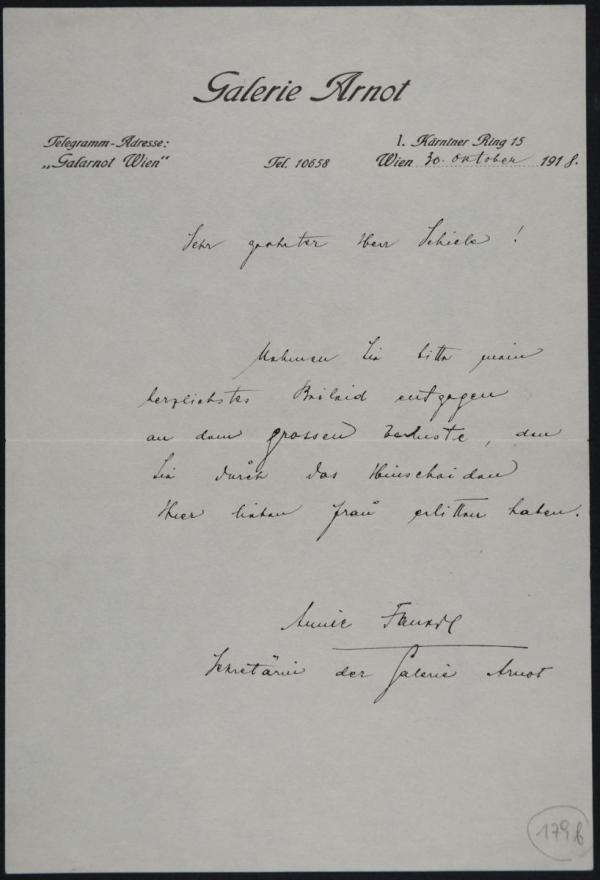 Galerie Arnot
Telegramm-Adresse:
„Galarnot Wien"
Tel. 10658
I. Kärntner Ring 15
Wien 30. Oktober 1918.
Sehr geehrter Herr Schiele !
Nehmen Sie bitte mein
herzlichstes Beileid entgegen
an dem grossen Verluste, den
Sie durch das Hinscheiden
Ihrer lieben Frau erlitten haben.
Annie
Sekretärin der Galerie Arnot
179 b